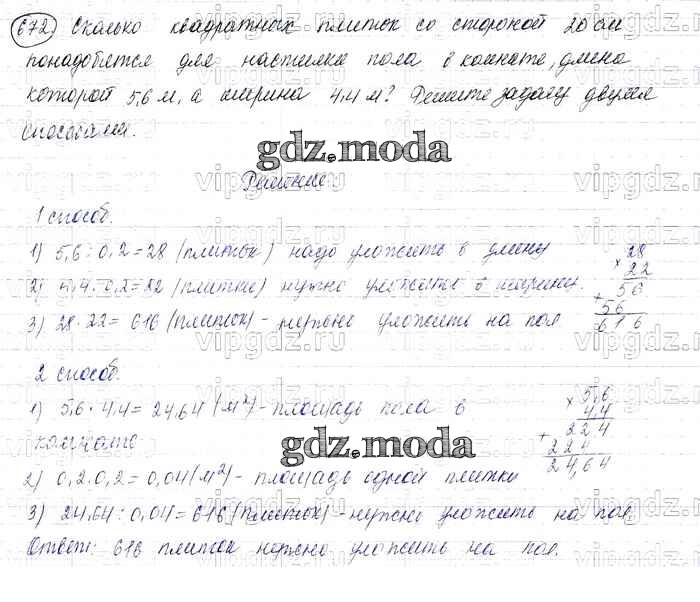 672) Сколько квадратных плиток со стороной 20 см
понадобится для настилки пола в комнате, длина
которой 5,6 м, а ширина 4,4 м? Решите задачу двумя
способами.
gdz.moda
Решение:
1 способ.
1) 5,6 : 0,2 = 28 (плиток) надо уложить в длину
2) 4,4 : 0,2 = 22 (плитки) нужно уложить в ширину.
3) 28 · 22 = 616 (плиток) - нужно уложить на пол
× 28
22
+ 56
56
616
2 способ.
1) 5,6 · 4,4 = 24,64 (м²) - площадь пола в
комнате
× 5,6
4,4
+ 224
224
24,64
gdz.moda
2) 0,2 · 0,2 = 0,04 (м²) - площадь одной плитки
3) 24,64 : 0,04 = 616 (плиток) - нужно уложить на пол
Ответ: 616 плиток нужно уложить на пол.